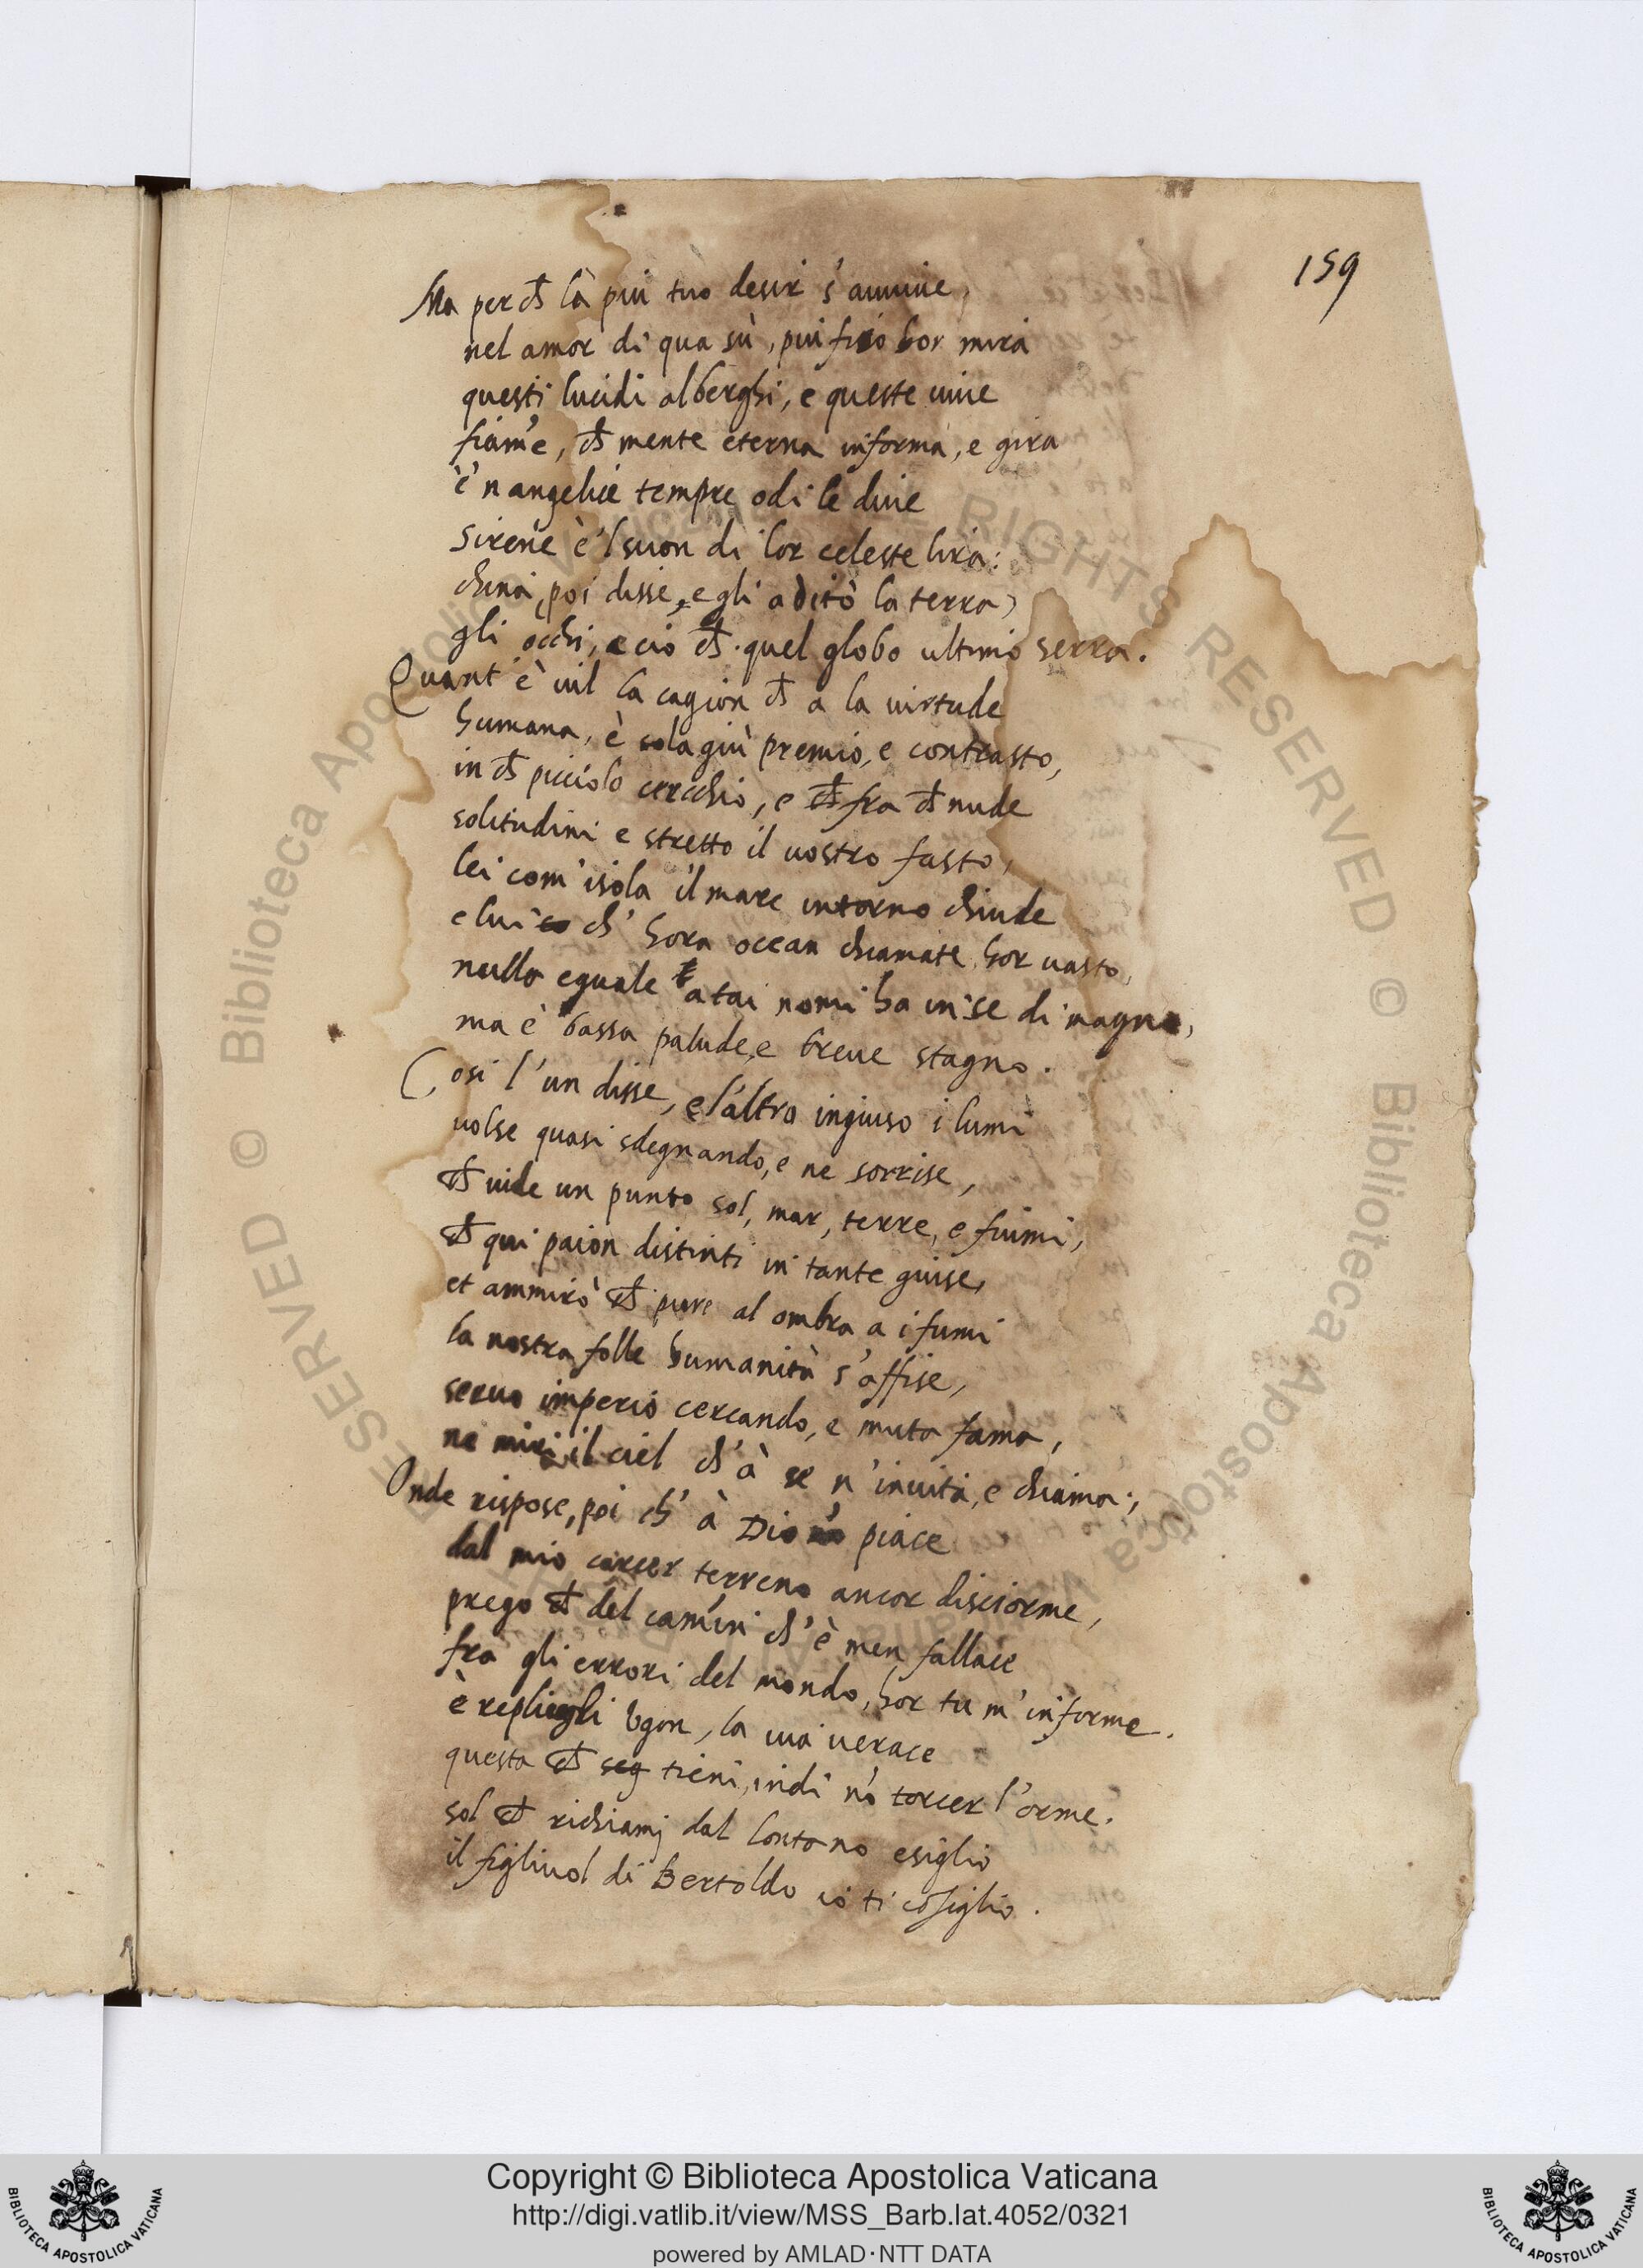 159
Ma per ch̄ là piu tuo desir s'auuiue,
nel amor di qua sù, piu fiso hor mira
questi lucidi alberghi, e queste uiue
fiam̄e, ch̄ mente eterna informa, e gira
è'n angelice tempre odi le diue
sirene è'l suon di lor celeste lira:
china, poi disse, e gli aditò la terra)
gli occhi, e ciò ch̄ quel globo ultimo serra.
Quant'è uil la cagion ch̄ a la uirtude
humana, è colagiù premio, e contrasto,
in ch̄ picciolo cerchio, e ch̄ fra ch̄ nude
solitudini e stretto il uostro fasto,
lei com'isola il mare intorno chiude
e lui co ch' hora ocean chiamate hor uasto,
nullo eguale a tai nomi ha in se di magno,
ma è bassa palude, e breue stagno.
Cosi l'un disse, e l'altro ingiuso i lumi
uolse quasi sdegnando, e ne sorrise,
ch̄ uide un punto sol, mar, terre, e fiumi,
ch̄ qui paion distinti in tante guise,
et ammirò ch̄ pure al ombra a i fumi
la nostra folle humanità s'affise,
seruo imperio cercando, e muta fama,
ne miri il ciel ch'à se n'inuita, e chiama;
Onde rispose, poi ch' à Dio nō piace
dal mio carcer terreno ancor disciorme,
prego ch̄ del camin ch'è men fallace
fra gli errori del mondo, hor tu m'informe.
è replicogli Vgon, la uia uerace
questa ch̄ seg tieni, indi nō torcer l'orme.
sol ch̄ richiami dal lontano esiglio
il figliuol di Bertoldo io ti cōsiglio.
Copyright © Biblioteca Apostolica Vaticana
http://digi.vatlib.it/view/MSS_Barb.lat.4052/0321
powered by AMLAD·NTT DATA